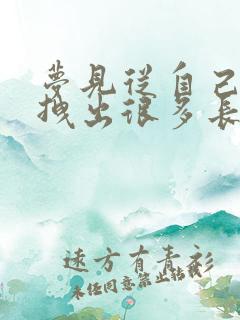 夢見從自己
拽出很多長
遠方有青衫
未經同意禁止轉載